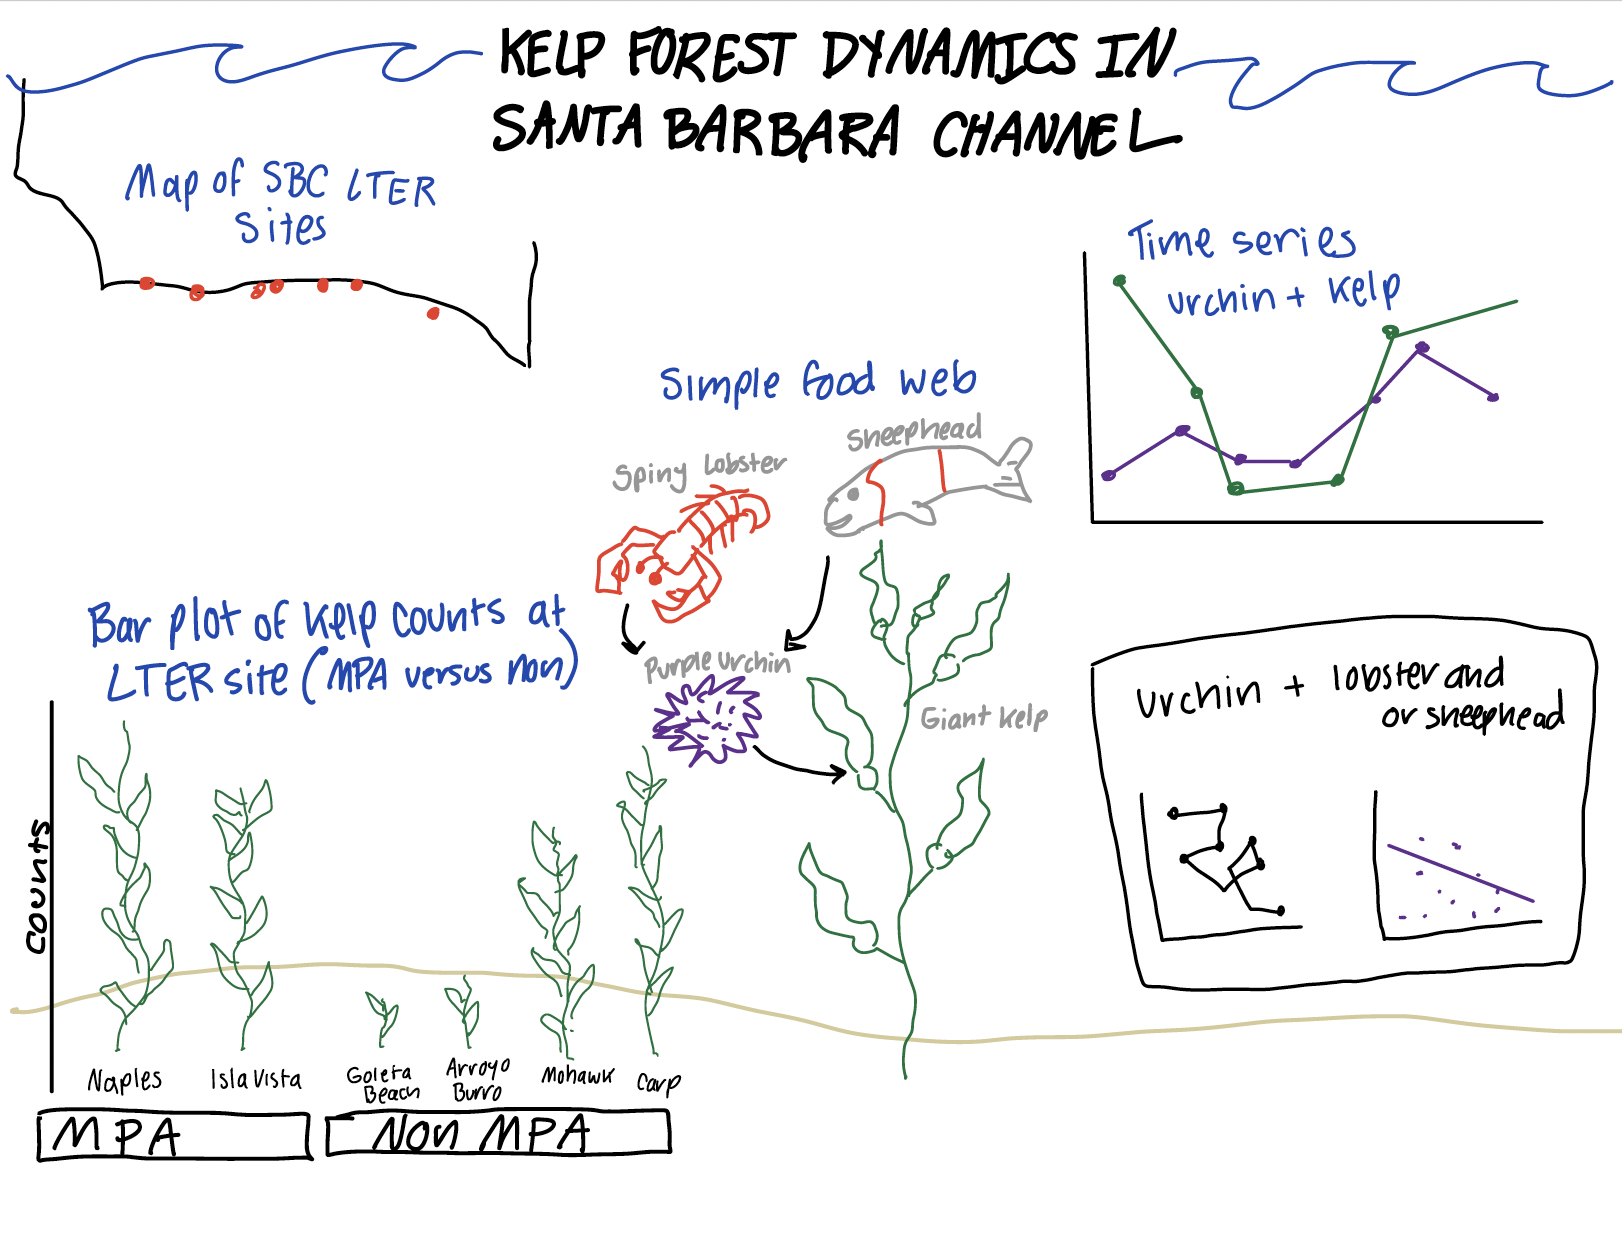 KELP FOREST DYNAMICS IN
SANTA BARBARA CHANNEL
Map of SBC LTER
Sites
Time series
urchin + kelp
Simple food web
Sheephead
Spiny Lobster
Purple Urchin
Giant Kelp
Bar plot of kelp counts at
LTER site (MPA versus non)
counts
Naples
Isla Vista
Goleta
Beach
Arroyo
Burro
Mohawk
Carp
MPA
Non MPA
urchin + lobster and
or sheephead